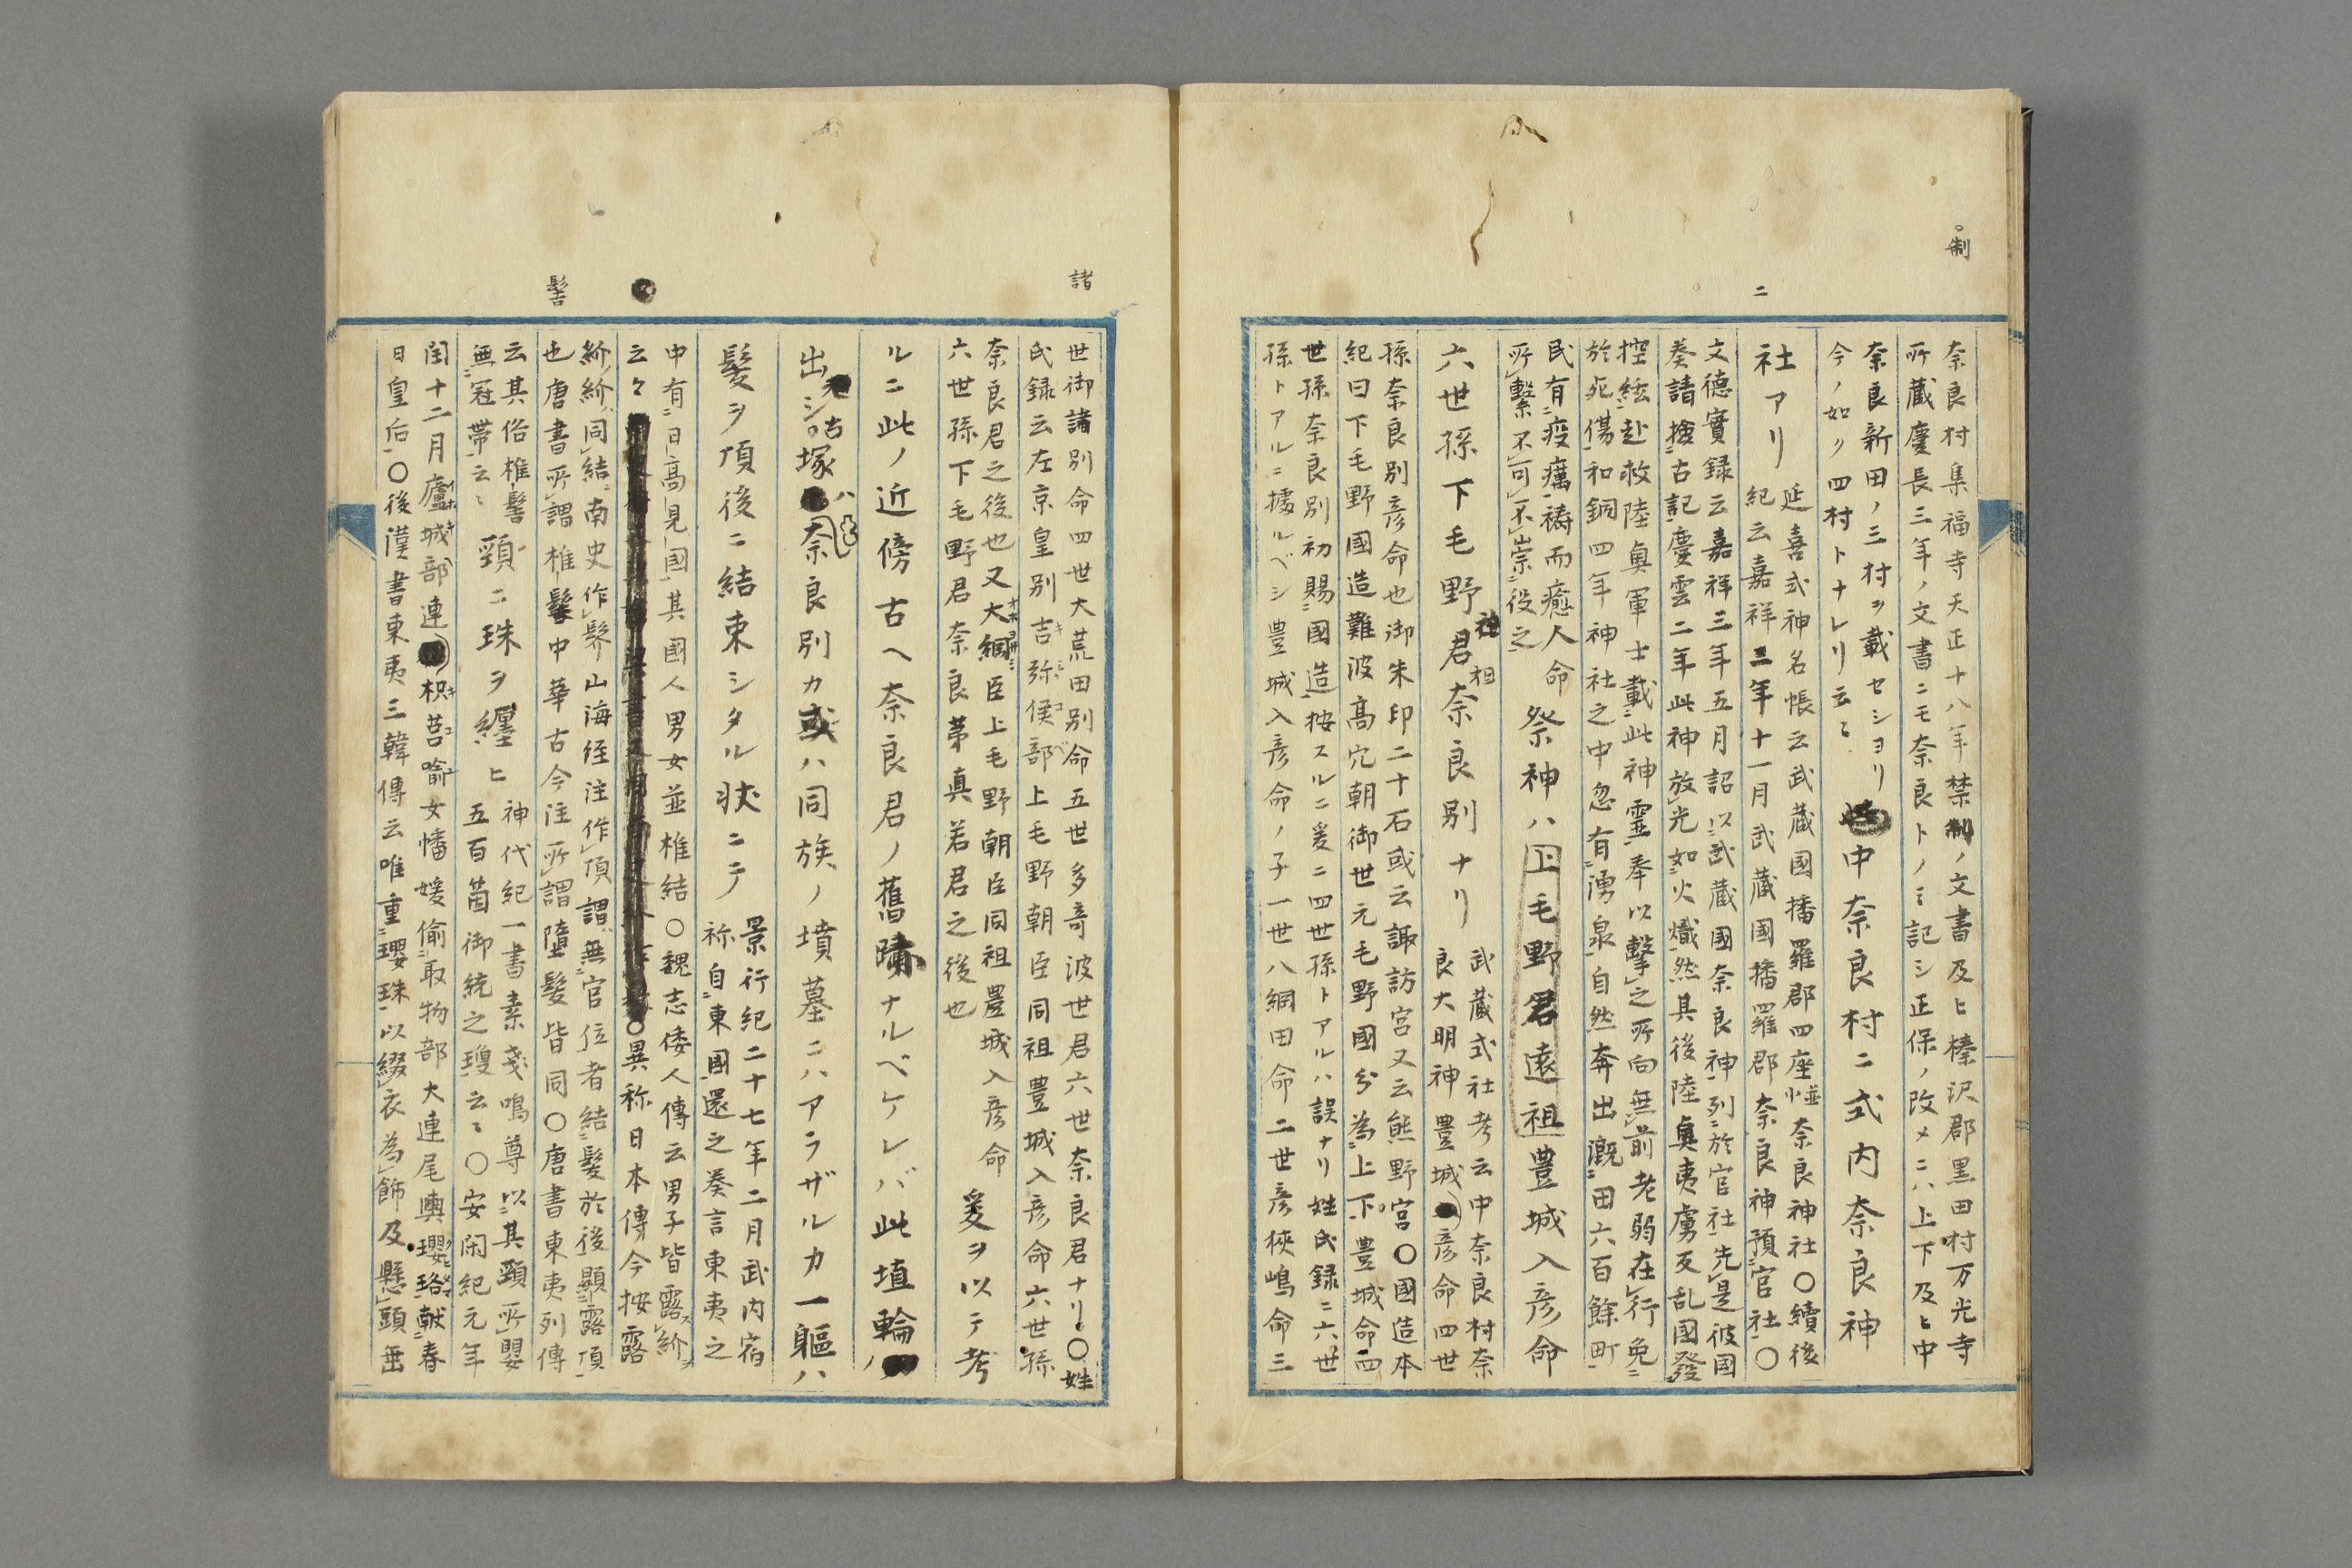 制
二
奈良村集福寺天正十八年禁制ノ文書及ヒ榛沢郡黒田村万光寺
所蔵慶長三年ノ文書ニモ奈良トノミ記シ正保ノ改メニハ上下及ヒ中
奈良新田ノ三村ヲ載セシヨリ
今ノ如ク四村トナレリ云々
中奈良村ニ式内奈良神
社アリ
延喜式神名帳云武蔵國播羅郡四座並小奈良神社〇續後
紀云嘉祥二年十一月武蔵國播羅郡奈良神預官社〇
文徳實録云嘉祥三年五月詔以武蔵國奈良神列於官社先是彼國
奏請検古記慶雲二年此神放光如火熾然其後陸奥夷虜反乱國發
控絃赴救陸奥軍士載此神霊奉以擊之所向無前老弱在行免
於死傷和銅四年神社之中忽有湧泉自然奔出漑田六百餘町
民有疫癘禱而癒人命
所繫不可不崇役之
祭神ハ上毛野君遠祖豊城入彦命
六世孫下毛野君祖奈良別ナリ
武蔵式社考云中奈良村奈
良大明神豊城彦命四世
孫奈良別彦命也御朱印二十石或云諏訪宮又云熊野宮〇國造本
紀曰下毛野國造難波高穴朝御世元毛野國分為上下豊城命四
世孫奈良別初賜國造按スルニ爰ニ四世孫トアルハ誤ナリ姓氏録ニ六世
孫トアルニ據ルベシ豊城入彦命ノ子一世八綱田命二世彦狭嶋命三
諸
髻
世御諸別命四世大荒田別命五世多奇波世君六世奈良君ナリ〇姓
氏録云左京皇別吉弥侯部上毛野朝臣同祖豊城入彦命六世孫
奈良君之後也又大綱臣上毛野朝臣同祖豊城入彦命
六世孫下毛野君奈良弟真若君之後也
爰ヲ以テ考
ルニ此ノ近傍古ヘ奈良君ノ舊蹟ナルベケレバ此埴輪ノ
出シ古塚ハ奈良別カ或ハ同族ノ墳墓ニハアラザルカ一軀ハ
髪ヲ頂後ニ結束シタル状ニテ
景行紀二十七年二月武内宿
祢自東國還之奏言東夷之
中有日高見國其國人男女並椎結〇魏志倭人傳云男子皆露紒
云々〇異称日本傳今按露
紒紒同結南史作髻山海経注作頂謂無官位者結髪於後顯露頂
也唐書所謂椎髻中華古今注所謂墮髪皆同〇唐書東夷列傳
云其俗椎髻
無冠帯云々
頸ニ珠ヲ纏ヒ
神代紀一書素戔嗚尊以其頸所嬰
五百箇御統之瓊云々〇安閑紀元年
閏十二月廬城部連枳莒喩女幡媛偸取物部大連尾輿瓔珞献春
日皇后〇後漢書東夷三韓傳云唯重瓔珠以綴衣為飾及懸頸垂